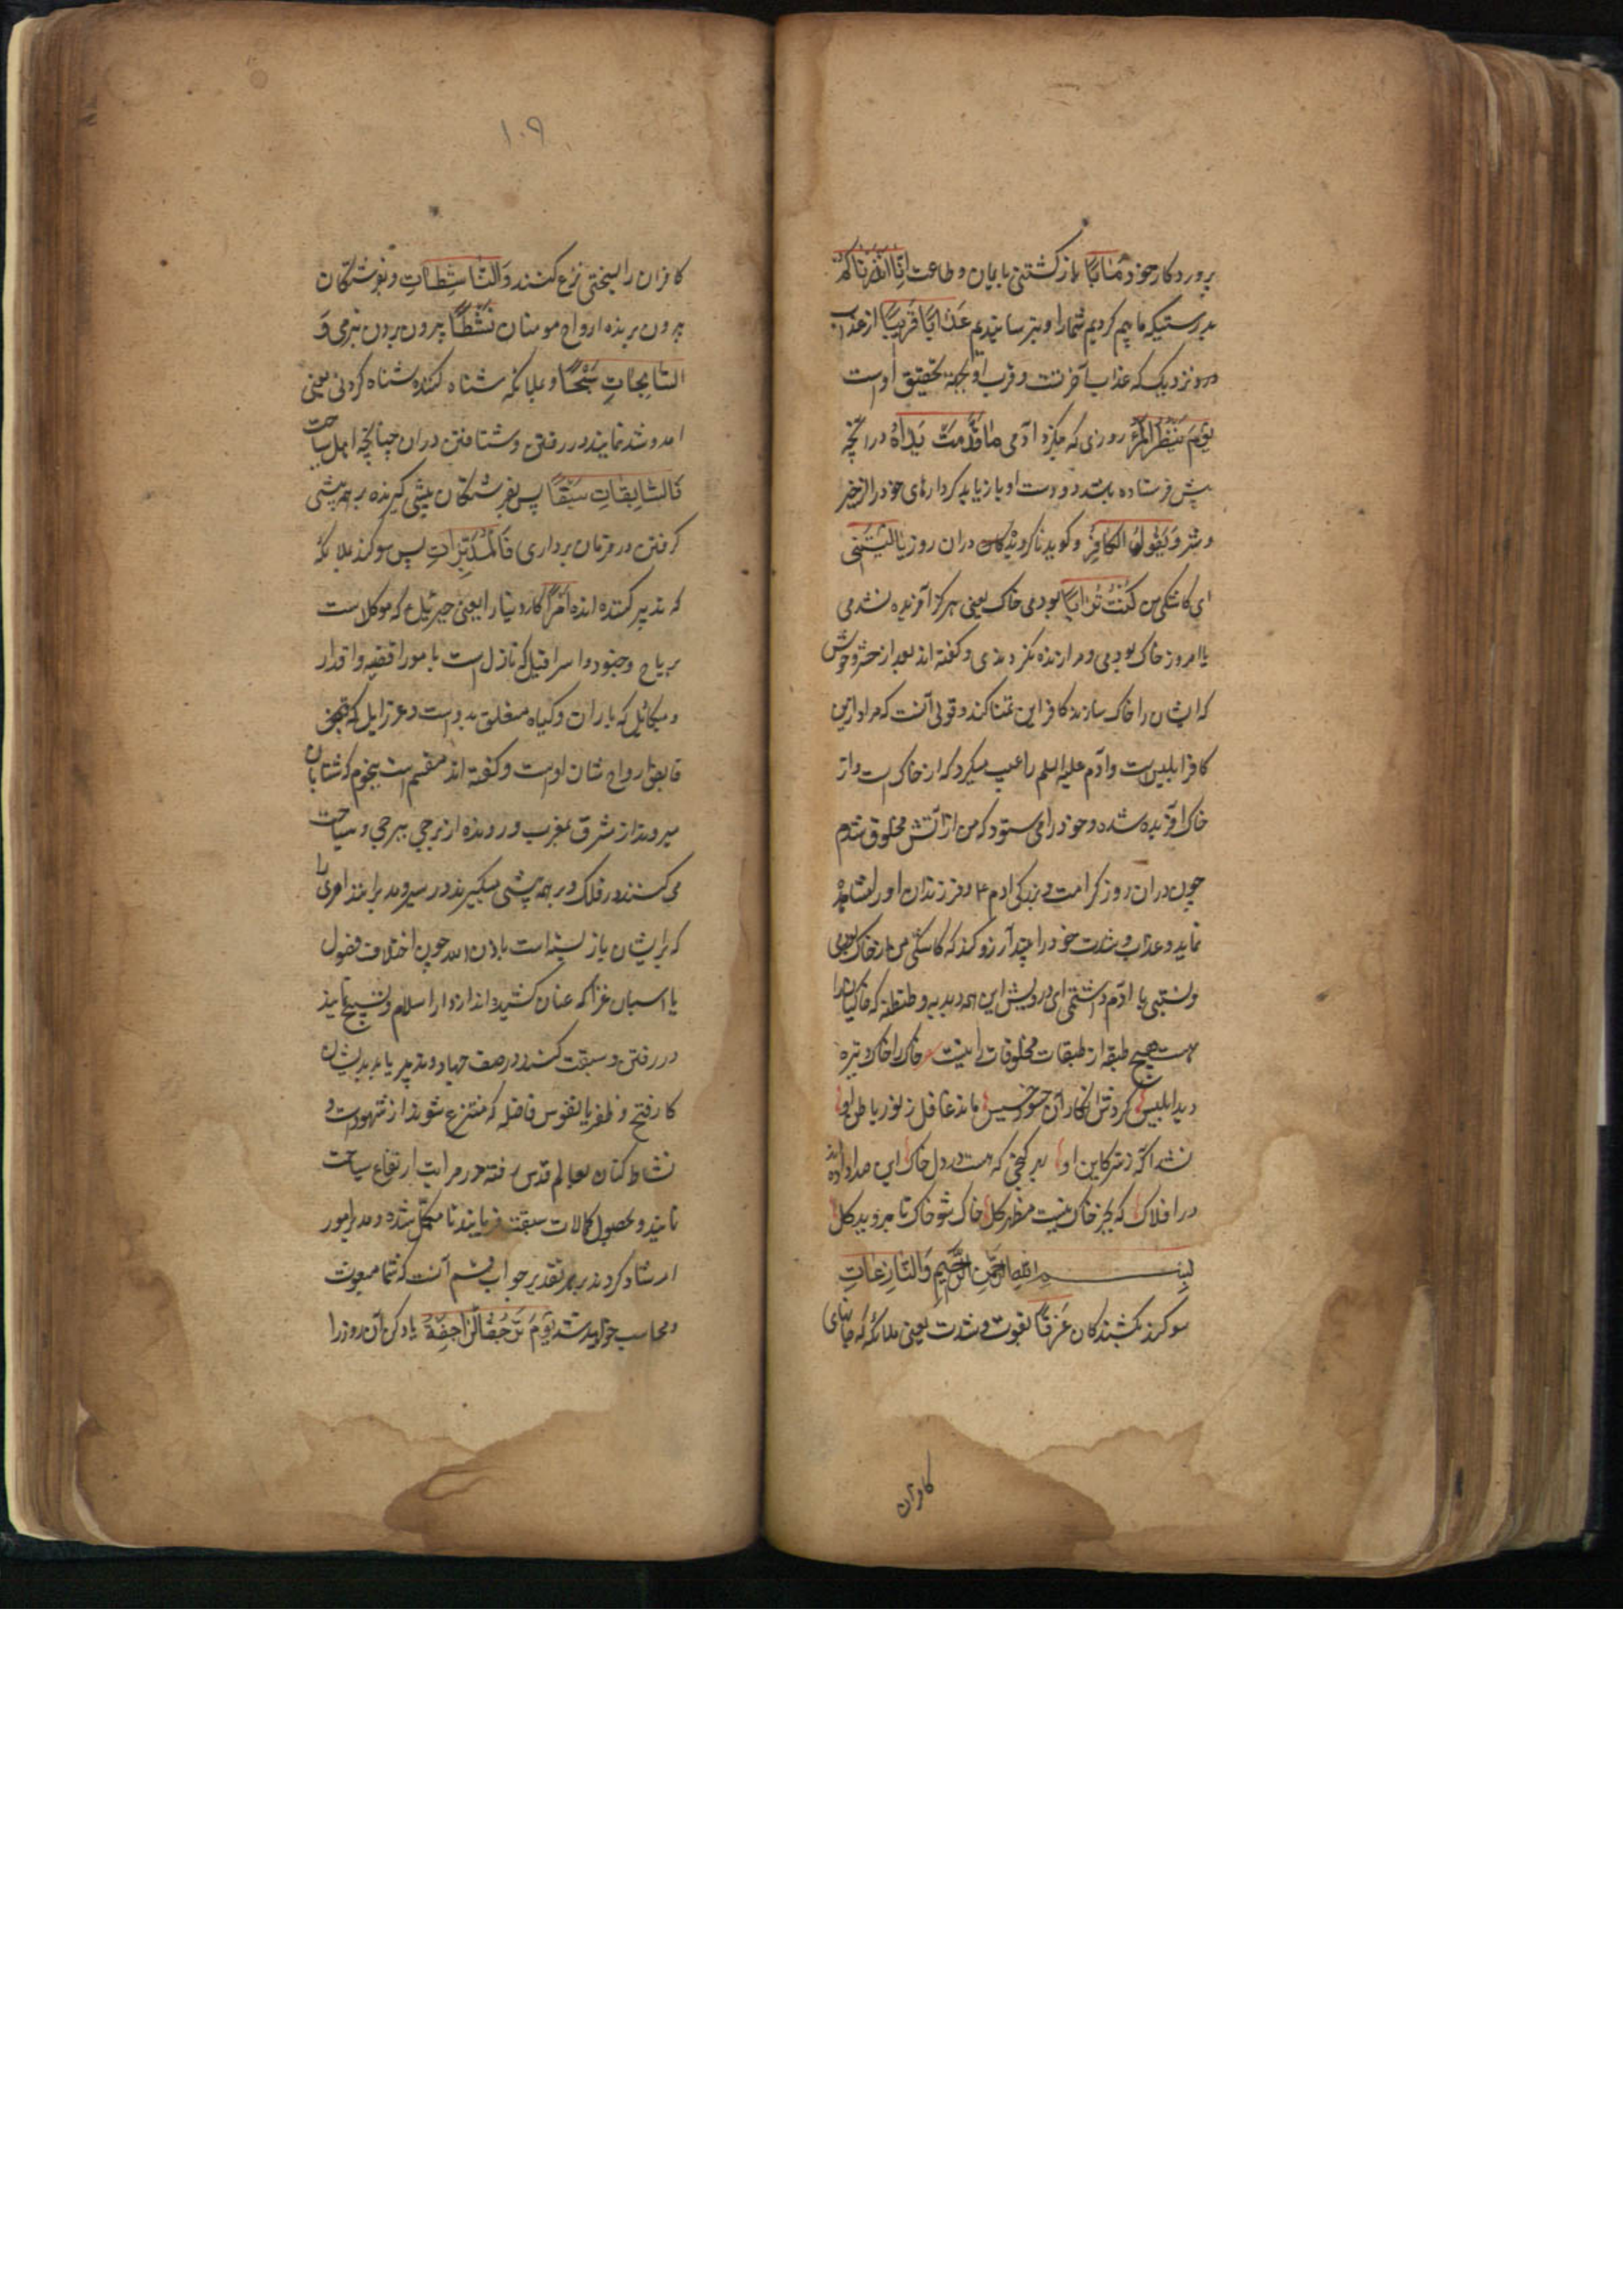 پروردکار خود مَاٰبًا بازکشتنی بایمان و طاعت اِنَّا اَنْذَرْنَاکُمْ
بدرستیکه ما بیم کردیم شما را و بترسانیدیم عَذَابًا قَرِیْبًا از عذاب
نزدیک که عذاب آخرتست و قرب او بجهة تحقیق اوست
یَوْمَ یَنْظُرُ الْمَرْءُ روزی که بنکرد ادمی مَا قَدَّمَتْ یَدَاهُ در انچه
پیش فرستاده باشد دو دست او یا زیابد کردارهای خود را از خیر
و شر وَیَقُولُ الْکَافِرُ و کوید ناکرویدکان دران روز یَا لَیْتَنِی
ای کاشکی من کُنْتُ تُرَابًا بودمی خاک یعنی هرکز آفریده نشدمی
یا امروز خاک بودمی و مرا زنده نکردندی و کفته اند بعد از حشر وحوش
که ایشان را خاک سازند کافر این تمنا کند و قولی آنست که مراد ازین
کافر ابلیس است و ادم علیه السلم را عیب میکرد که از خاک است و از
خاک افریده شده و خود را می ستود که من از آتش مخلوق شدم
چون دران روز کرامت و بزرکی ادم ۴ و فرزندان او را مشاهده
نماید و عذاب و شدت خود را بیند آرزو کند که کاشکی من از خاک بودمی
و نسبتی با ادم داشتمی ای درویش این همه دبدبه و طنطنه که خاکیان را
هست هیچ طبقه از طبقات مخلوقات را نیست خاک را خاک و تیره
دید ابلیس کرد ش انکار آن حسود خسیس ماند غافل ز نور باطن او
نشد اکه ز سر کاین او بر کنجی که هست در دل خاک این صدا داده اند
در افلاک که بجز خاک نیست مظهر کل خاک شو خاک تا بروید کل
بِسْمِ اللهِ الرَّحْمٰنِ الرَّحِیْمِ وَالنَّازِعَاتِ
سوکند بکشندکان غَرْقًا بقوت و شدت یعنی ملائکه که جانهای
کافران
۱۰۹
کافران را بسختی نزع کنند وَالنَّاشِطَاتِ و بفرشتکان
بیرون برنده ارواح مومنان نَشْطًا بیرون بردن بنرمی وَ
السَّابِحَاتِ سَبْحًا و بملائکه شناه کننده شناه کردنی یعنی
امد و شد نمایند در رفتن و شتافتن دران چنانچه اهل سباحت
فَالسَّابِقَاتِ سَبْقًا پس بفرشتکان پیشی کیرنده بر هم پیشی
کرفتن در فرمان برداری فَالْمُدَبِّرَاتِ پس سوکند بملائکه
که تدبیر کننده اند اَمْرًا کار دنیا را یعنی جبرئیل ع که موکل است
بریاح و جنود و اسرافیل که نازل است بامور اقضیه و اقدار
و میکائیل که باران و کیاه متعلق بدوست و عزرایل که
قابض ارواح شان اوست و کفته اند مقسم است بنجوم که شتابان
میروند از مشرق بمغرب و رونده از برجی ببرجی و سباحت
می کنند در فلک و بر هم پیشی میکیرند در سیر و مدبرانند امری را
که بر ایشان باز بسته است باذن الله چون اختلاف فصول
یا اسبان غزا که عنان کشیده اند از دار اسلام و تسبیح نمایند
در رفتن و سبقت کنند در صف جهاد و تدبیر یابد بدیشان
کار فتح و ظفر یا نفوس فاضله که منتزع شوند از شهوات و
نشاط کنان بعالم قدس رفته در مراتب ارتقاع سباحت
نمایند و بحصول کمالات سبقت فرمایند تا مکمل شده و مدبر امور
ارشاد کردند بر هر تقدیر جواب قسم آنست که شما مبعوث
و محاسب خواهید شد یَوْمَ تَرْجُفُ الرَّاجِفَةُ یاد کن آن روز را